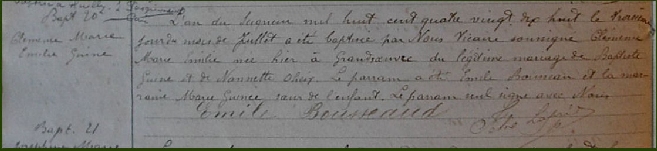 Bapt 20
Clémence Marie
Emilie Guine
L'an du Seigneur mil huit cent quatre vingt dix huit le troisième
jour du mois de Juillet a été baptisée par Nous Vicaire soussigné Clémence
Marie Emilie née hier à Grandoeuvre du légitime mariage de Baptiste
Guine et de Nannette Choix. Le parrain a été Emile et la mar-
raine Marie Guinée soeur de l'enfant. Le parrain seul signe avec Nous
Emile Bousseaud
Bapt. 21
Marie